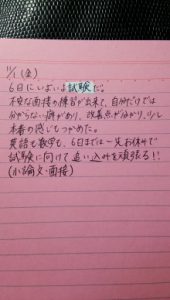 11/1(金)
6日にいよいよ試験だ。
不安な面接の練習が出来て、自分だけでは
分からない癖があり、改善点が分かり、少し
本番の感じもつかめた。
英語も数学も、6日までは一先お休みで
試験に向けて追い込みを頑張る!!
(小論文・面接)